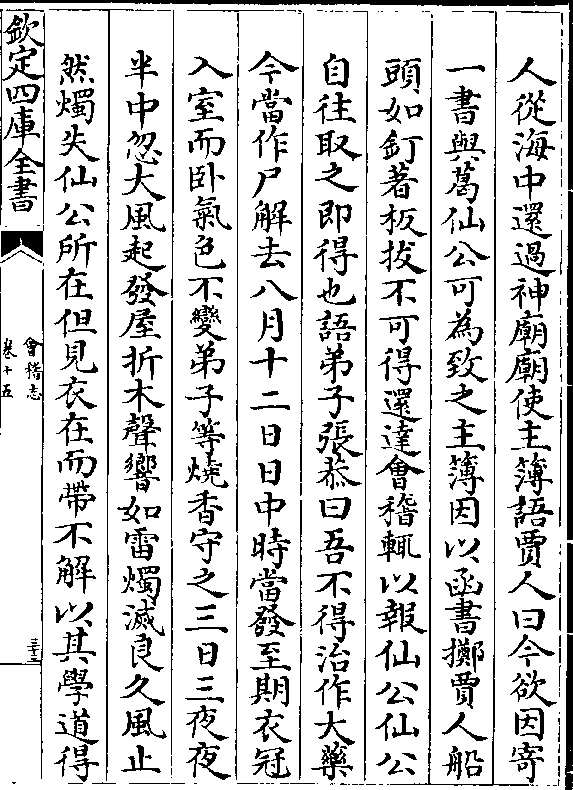 人從海中還過神廟廟使主簿語賈人曰今欲因寄
一書與葛仙公可為致之主簿因以函書擲賈人船
頭如釘著板拔不可得還達會稽輒以報仙公仙公
自往取之即得也語弟子張恭曰吾不得治作大藥
今當作尸解去八月十二日日中時當發至期衣冠
入室而卧氣色不變弟子等燒香守之三日三夜夜
半中忽大風起發屋折木聲響如雷燭滅良久風止
然燭失仙公所在但見衣在而帶不解以其學道得
欽定四庫全書
會稽志
卷十五
三十三